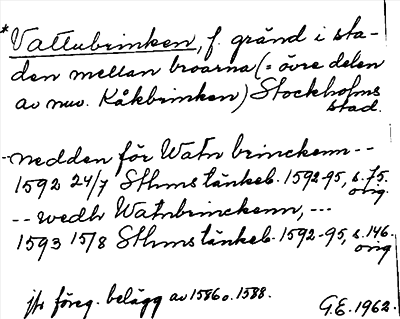 *Vattubrinken, f. gränd i sta-
den mellan broarna (= övre delen
av nuv. Kåkbrinken) Stockholms
stad.
-nedden för Watn brinckenn--
1592 24/7 Sthms tänkeb. 1592-95, s. 75.
orig.
-- wedh Watnbrinckenn, ---
1593 15/8 Sthms tänkeb. 1592-95, s. 146.
orig
jfr föreg. belägg av 1586 o. 1588.
G.E. 1962.